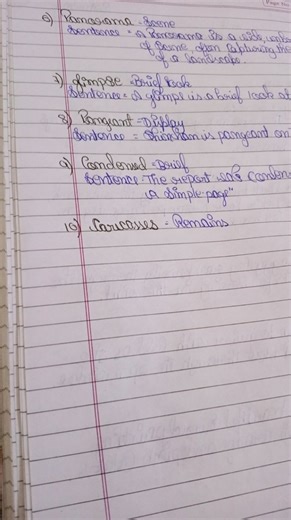 6) Panaroma - Scene
Sentence = "a Panaroma is a wide, unbr
of scene, often capturing the
of a landscape.
7) glimpse - Brief look
Sentence = a glimps is a brief look at
8) Pangeant - Display
Sentence = is pangeant on
9) Condensed - Brief
Sentence - The report was Conden
a single page"
10) Carcasses - Remains